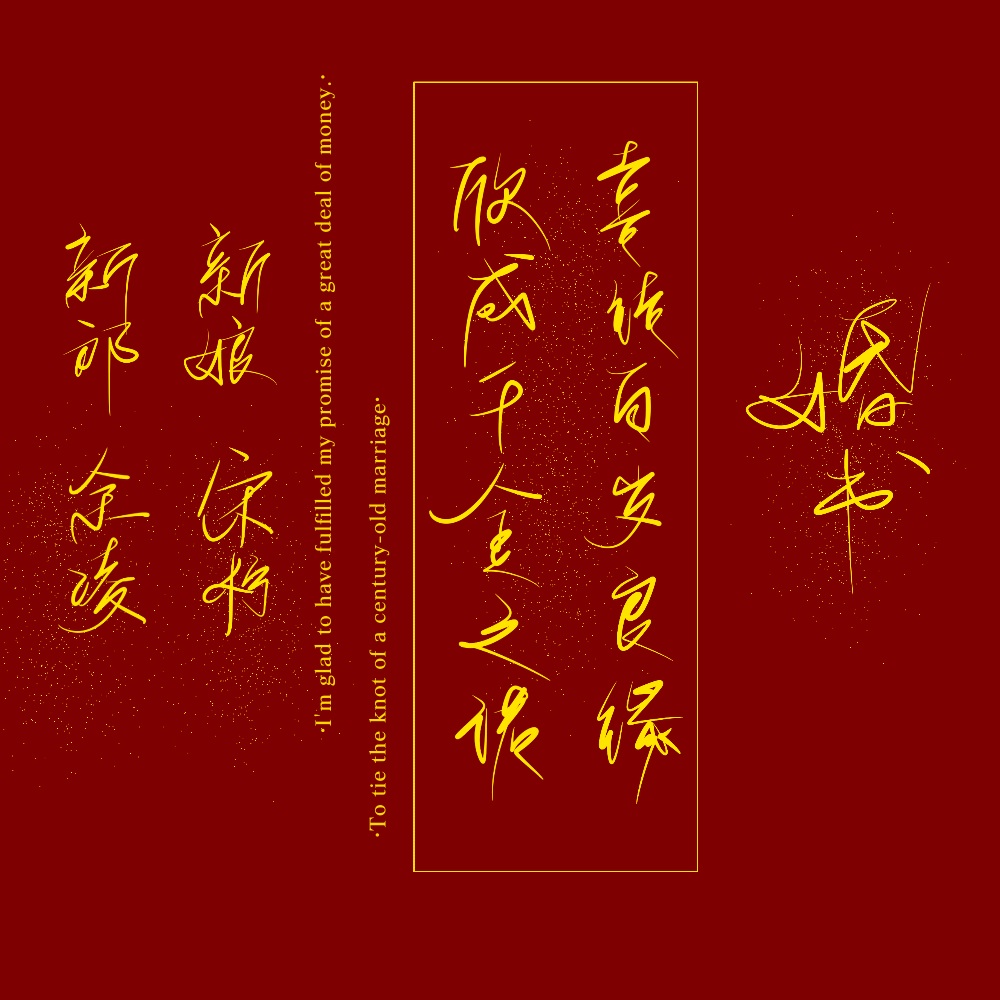 婚书
喜结百岁良缘
欣成千金之诺
·To tie the knot of a century-old marriage·
·I'm glad to have fulfilled my promise of a great deal of money.·
新娘 宋柯
新郎 余凌